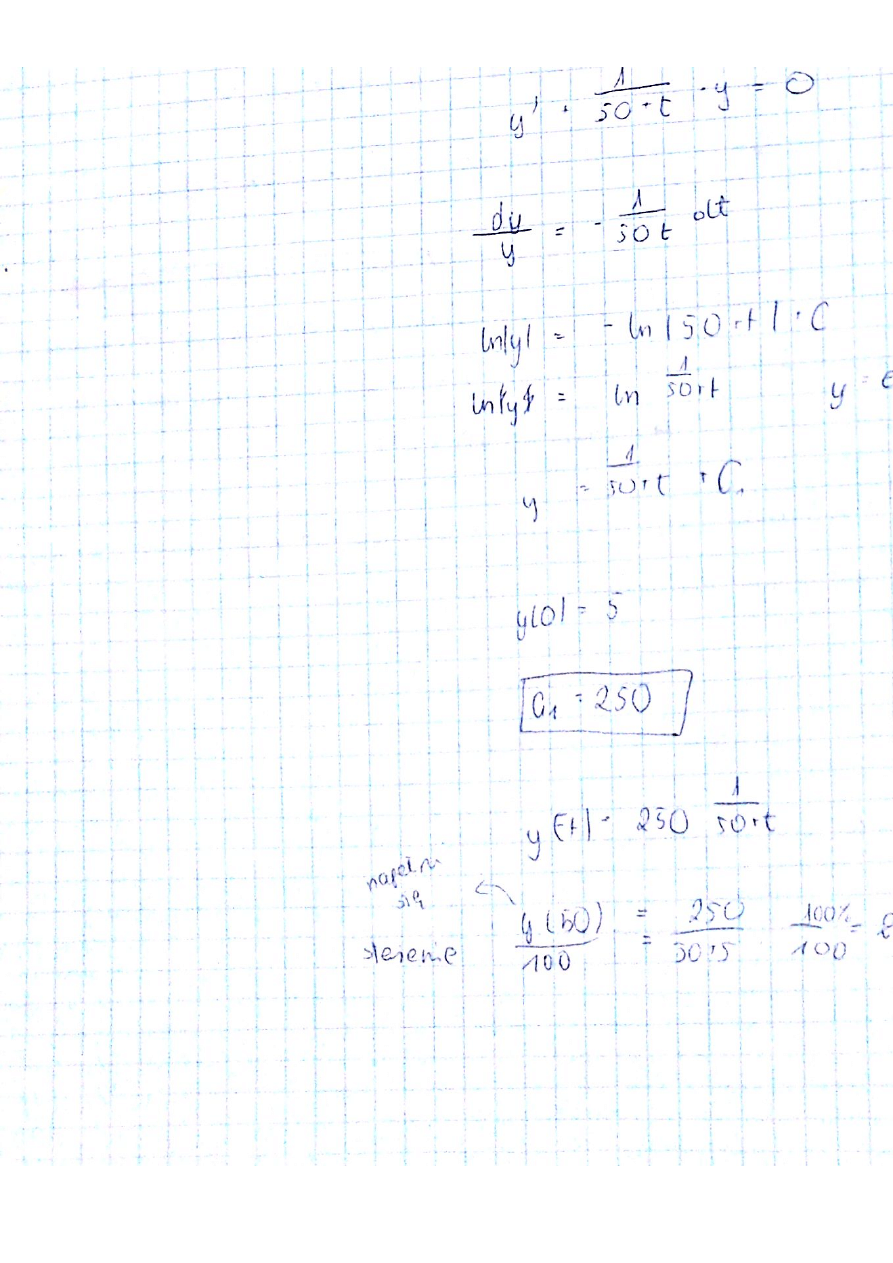 y' + 1/(50+t) · y = 0
dy/y = - 1/(50+t) dt
ln|y| = - ln|50+t| + C
ln|y| = ln 1/(50+t) y =
y = 1/(50+t) · C₁
y(0) = 5
C₁ = 250
y(t) = 250 1/(50+t)
napełni
się
stężenie y(50)/100 = 250/(50+5 100%/100 =